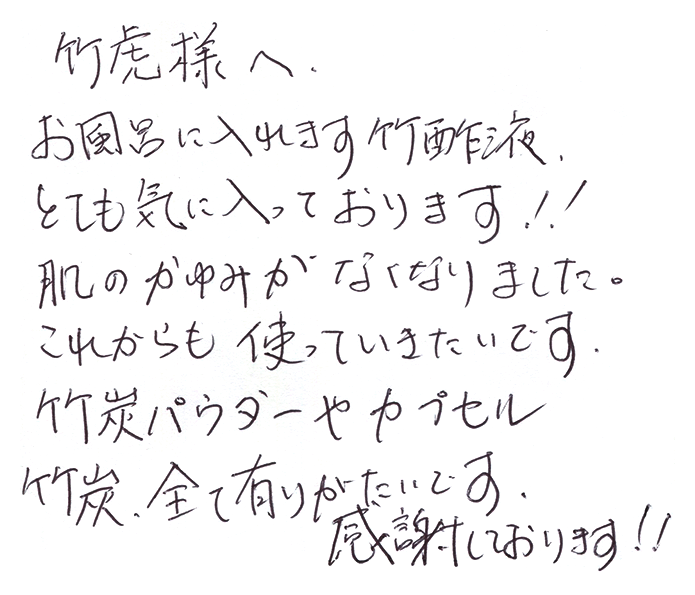 竹虎様へ.
お風呂に入れます竹酢液、
とても気に入っております!!
肌のかゆみがなくなりました。
これからも使っていきたいです.
竹炭パウダーやカプセル
竹炭、全て有りがたいです.
感謝しております!!